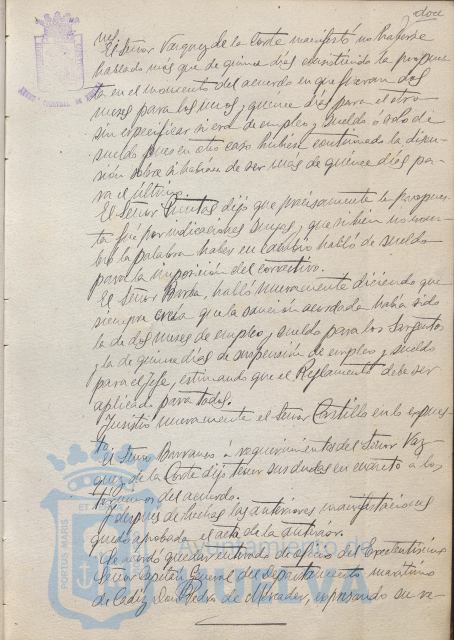 doce
El Señor Vazquez de la Corte manifestó no haberse
hablado más que de quince días emitiendo la propues-
ta en el momento del acuerdo en que fueran dos
meses para los unos y quince días para el otro
sin especificar si era de empleo y sueldo ó solo de
sueldo pues en otro caso hubiera continuado la discu-
sión sobre si habían de ser más de quince días pa-
ra el último.
El Señor dijo que precisamente la propues-
ta fué por indicaciones suyas, que si bien no
la palabra haber en cambio habló de sueldo
para la imposición del correctivo.
El Señor Borda, habló nuevamente diciendo que
siempre creía que la sanción acordada había sido
la de dos meses de empleo y sueldo para los Sargentos
y la de quince días de suspensión de empleo y sueldo
para el Jefe, estimando que el Reglamento debe ser
aplicado para todos.
Insistió nuevamente el Señor Castillo en lo expues-
to.
El Señor Barranco á requerimientos del Señor Vaz-
quez de la Corte dijo tener sus dudas en cuanto a los
términos del acuerdo.
Y después de hechas las anteriores manifestaciones
quedó aprobada el acta de la anterior.
Se acordó quedar enterado de oficio del Excelentísimo
Señor Capitán General del Departamento marítimo
de Cadiz Don Pedro de Mercader, expresando su re-
PORTUS MARIS
ET
Ayuntamiento de